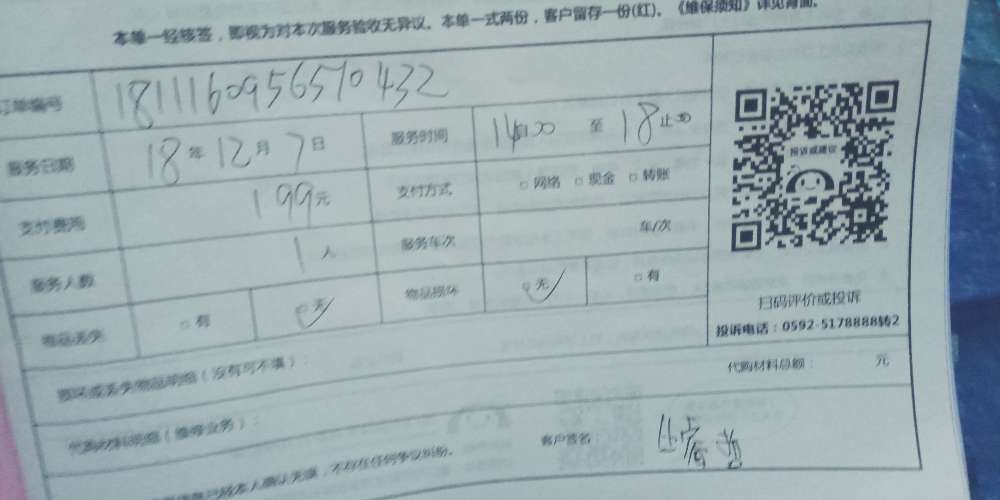 本单一经核签，即视为对本次服务验收无异议。本单一式两份，客户留存一份(红)。《维保须知》详见背面。
订单编号 181116095657 0432
服务日期 18年12月7日 服务时间 14:00 至 18止:00
支付费用 199元 支付方式 □ 网络 □ 现金 □ 转账
服务人数 1人 服务车次 车/次
物品丢失 □ 有 □ 无 物品损坏 □ 无 □ 有
投诉或建议
扫码评价或投诉
投诉电话：0592-5178888转2
损坏或丢失物品明细（没有可不填）：
代购材料总额： 元
代购材料明细（维修业务）：
本人确认无误，不存在任何争议纠纷。
客户签名：